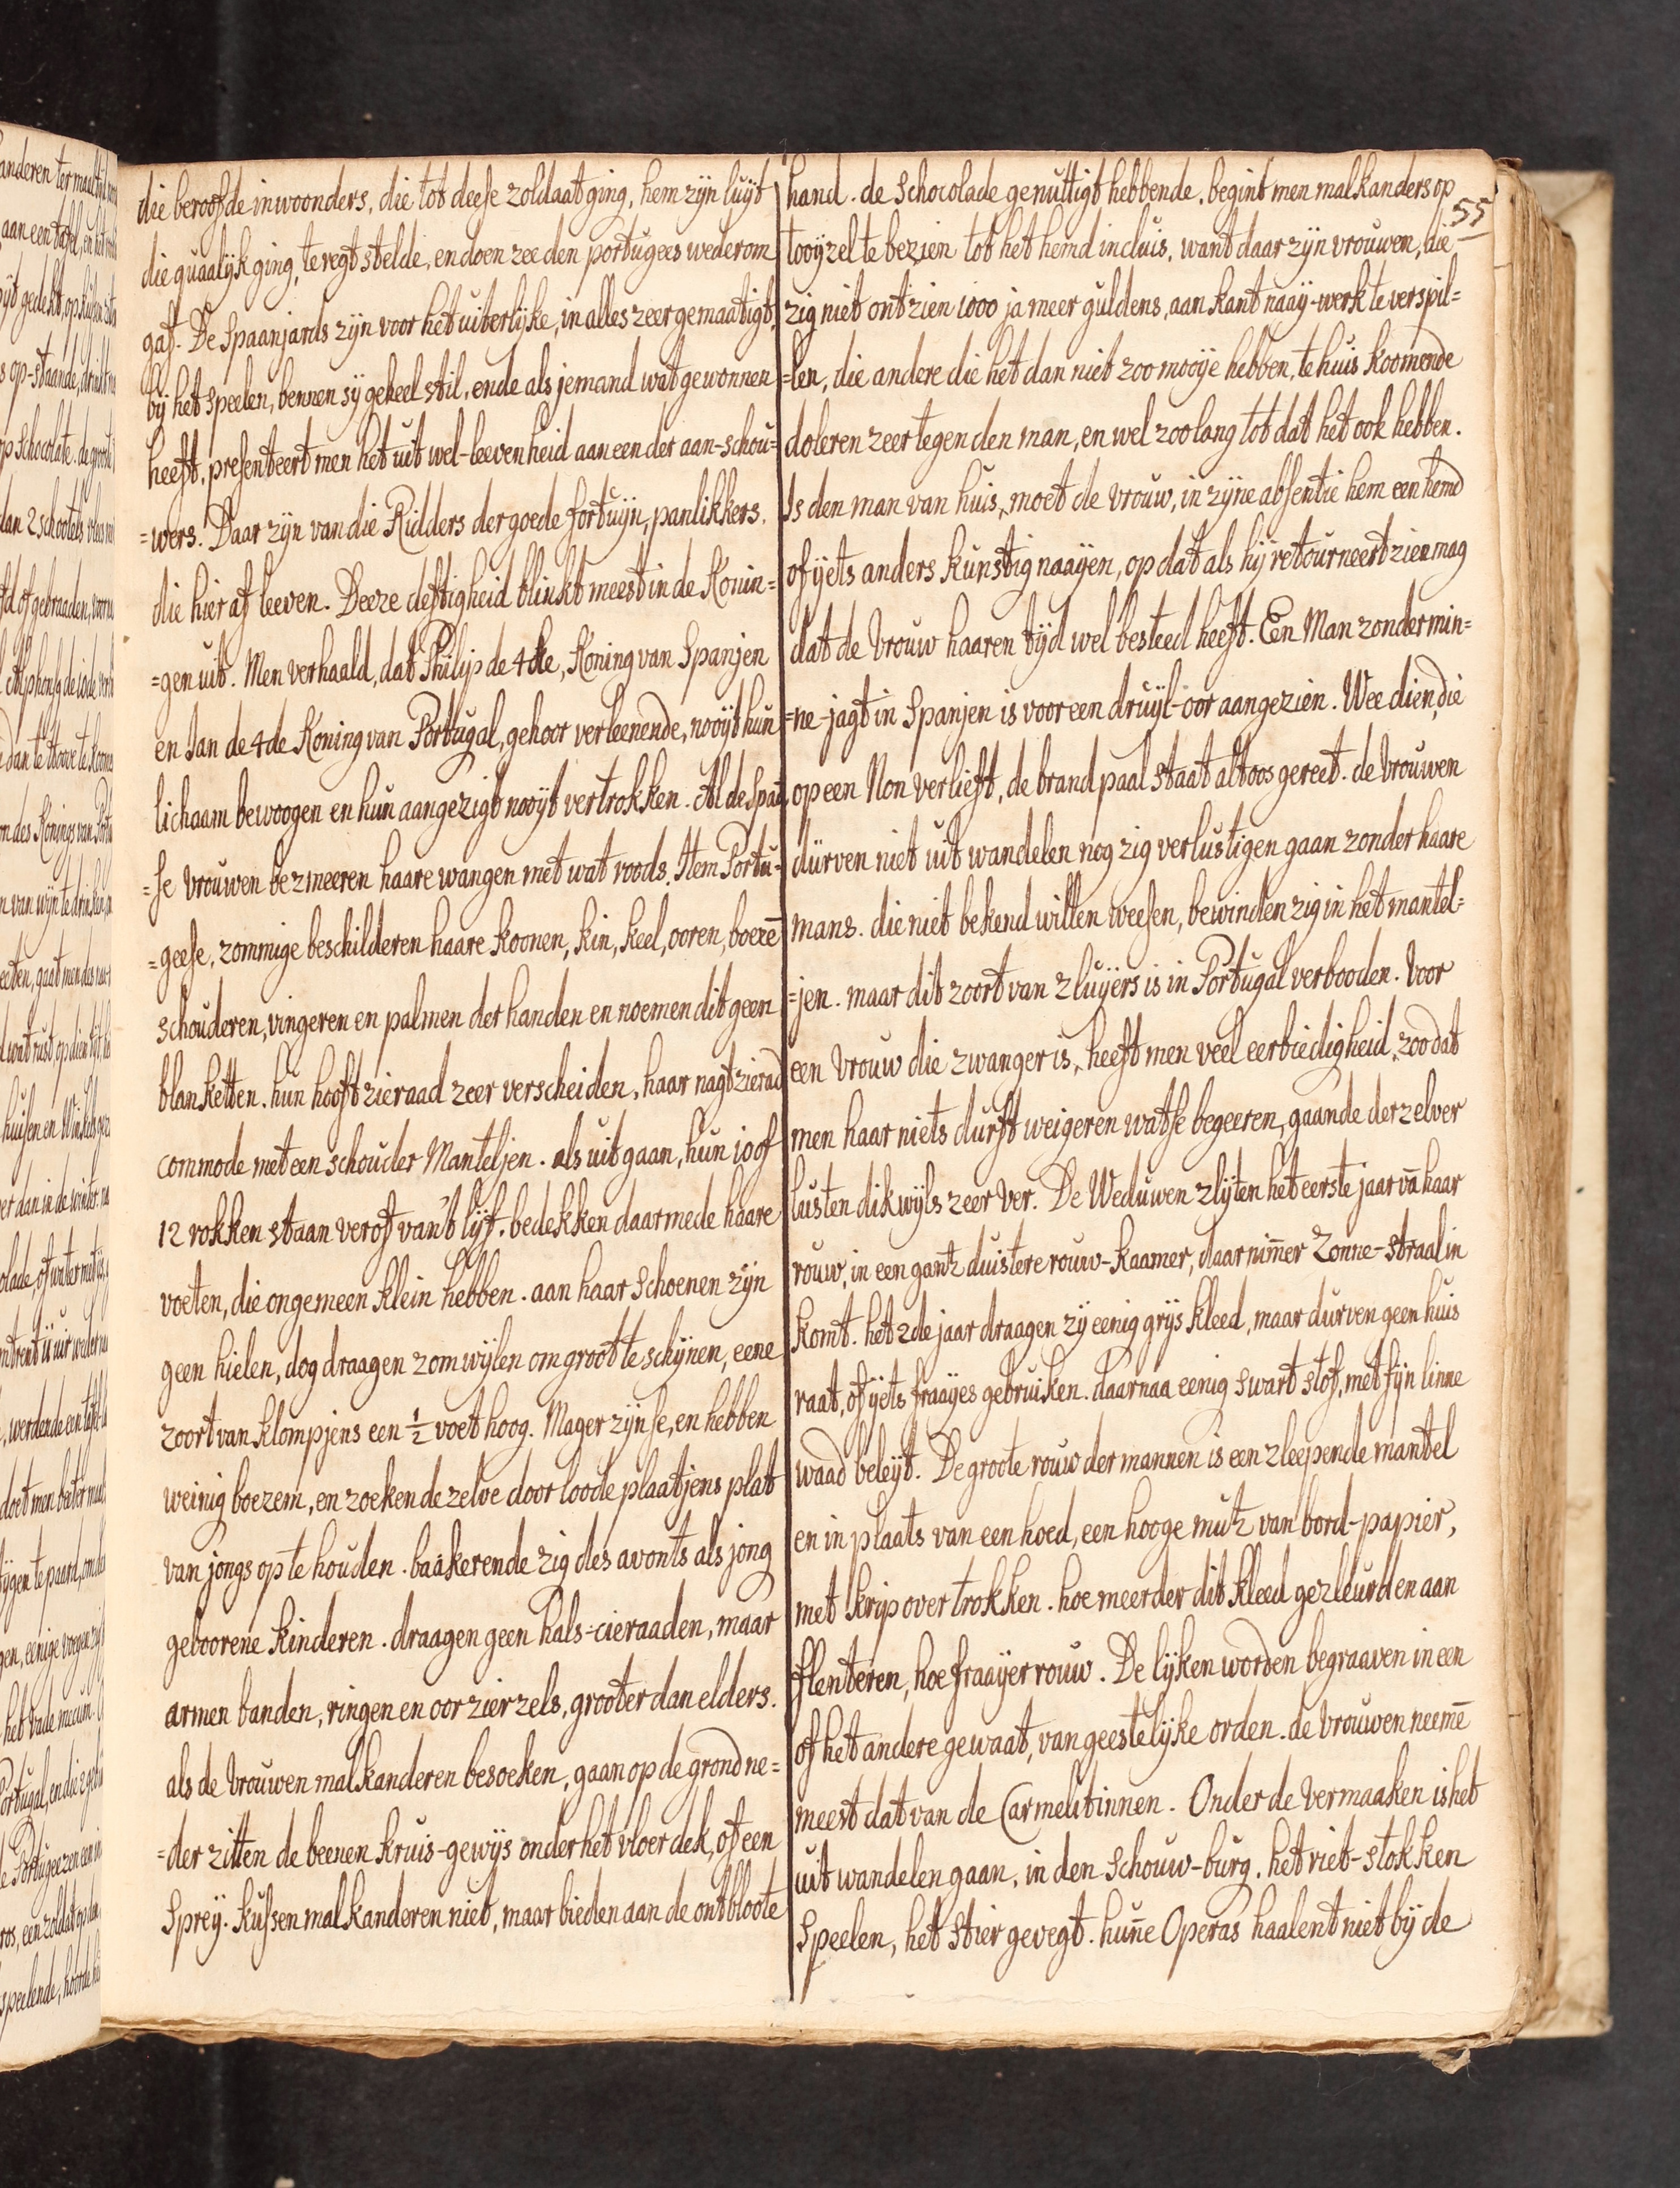 die beroofde inwoonders, die tot deese zoldaat ging, hem zyn luyt
die quaalyk ging, te regt stelde, en doen zee den portugees wederom
gaf. De Spaanjards zyn voor het uiterlyke, in alles zeer gemaatigt,
by het speelen, bennen sy geheel stil, ende als jemand wat gewonnen
heeft, presenteert men het uit wel-leevenheid aan een der aan-schou=
=wers. Daar zyn van die Ridders der goede fortuyn, panlikkers,
die hier af leeven. Deeze deftigheid blinkt meest in de Konin=
=gen uit. Men verhaald, dat Philip de 4de, Koning van Spanjen
en Jan de 4de Koning van Portugal, gehoor verleenende, nooyt hun
lichaam bewoogen en hun aangezigt nooyt vertrokken. Al de Spaa
=se vrouwen bezmeeren haare wangen met wat roods. Item Portu-
=geese, zommige beschilderen haare koonen, kin, keel, ooren, boezē
schouderen, vingeren en palmen der handen en noemen dit geen
blanketten. hun hooft zieraad zeer verscheiden, haar nagt zierad
commode met een schouder Manteljen. als uit gaan, hun 10 of
12 rokken staan ver of van't lyf. bedekken daarmede haare
voeten, die ongemeen klein hebben. aan haar schoenen zyn
geen hielen, dog draagen zomwylen om groot te schynen, eene
zoort van klompjens een ½ voet hoog. Mager zyn se, en hebben
weinig boezem, en zoeken de zelve door loode plaatjens plat
van jongs op te houden. baakerende zig des avonts als jong
geboorene kinderen. draagen geen hals-cieraaden, maar
armen banden, ringen en oor zierzels, grooter dan elders.
als de Vrouwen malkanderen besoeken, gaan op de grond ne=
=der zitten de beenen kruis-gewys onder het vloer dek, of een
Sprey. kussen malkanderen niet, maar bieden aan de ontbloote
55
hand. de Schocolade genuttigt hebbende, begint men malkanders op
tooyzel te bezien tot het hemd incluis, want daar zyn vrouwen, die
zig niet ontzien 1000 ja meer guldens, aan kant naay-werk te verspil=
=len, die andere die het dan niet zoo mooye hebben, te huis koomende
doleren zeer tegen den man, en wel zoo lang tot dat het ook hebben.
Is den man van huis, moet de vrouw, in zyne absentie hem een hemd
of yets anders kunstig naayen, op dat als hy retourneert zien mag
dat de Vrouw haaren tyd wel besteed heeft. Een Man zonder min=
=ne-jagt in Spanjen is voor een druyl-oor aangezien. Wee dien, die
op een Non verlieft, de brand paal staat altoos gereet. de Vrouwen
durven niet uit wandelen nog zig verlustigen gaan zonder haare
mans. die niet bekend willen weesen, bewinden zig in het mantel=
=jen. maar dit zoort van zluyers is in Portugal verbooden. Voor
een Vrouw die zwanger is, heeft men veel eerbiedigheid, zoo dat
men haar niets durft weigeren wat se begeeren, gaande derzelver
lusten dikwyls zeer ver. De Weduwen zlyten het eerste jaar vā haar
rouw, in een gantz duistere rouw-kaamer, daar nim̄er Zonne-straal in
komt. het 2de jaar draagen zy eenig grys kleed, maar durven geen huis
raat, of yets fraayes gebruiken. daarnaa eenig swart stof, met fyn linne
waad beleyt. De groote rouw der mannen is een zleepende mantel
en in plaats van een hoed, een hooge mutz van bord-papier,
met krip overtrokken. hoe meerder dit kleed gezleurd en aan
flenteren, hoe fraayer rouw. De lyken worden begraaven in een
of het andere gewaat, van geestelyke orden. de Vrouwen neemē
meest dat van de Carmelitinnen. Onder de Vermaaken is het
uit wandelen gaan, in den Schouw-burg, het riet-stokken
Speelen, het Stier gevegt. hun̄e Operas haalent niet by de